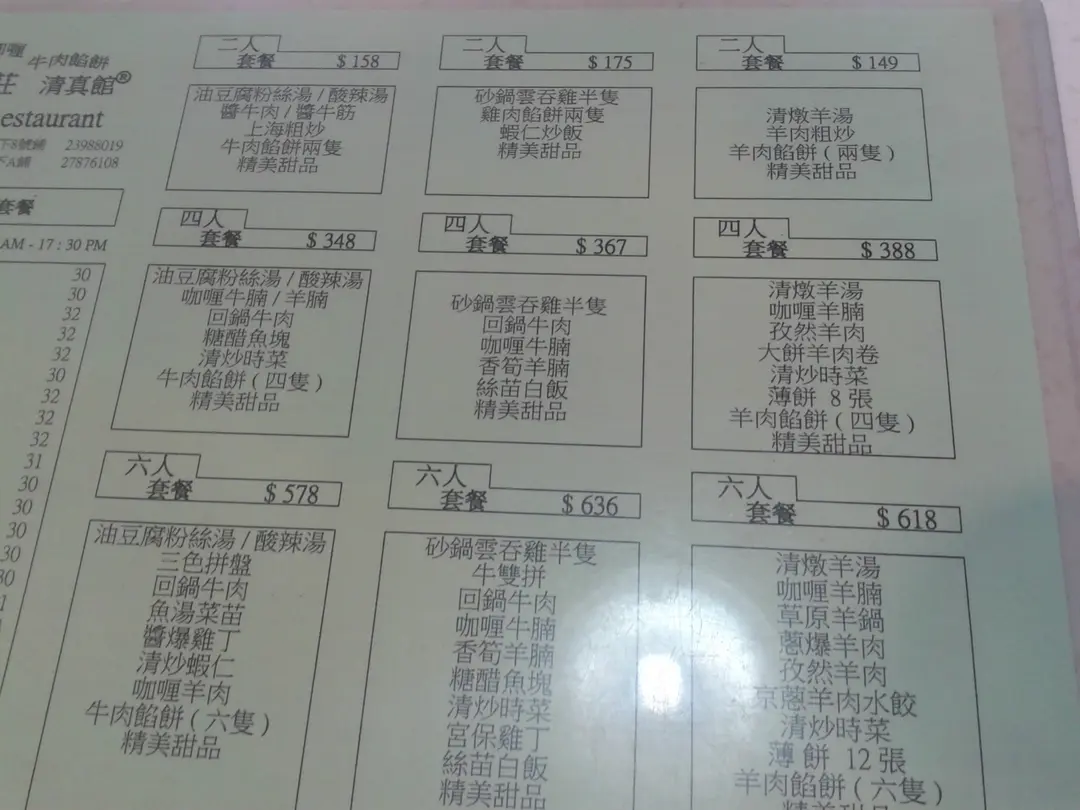 牛肉餡餅
莊 清真館®
estaurant
下8號鋪 23988019
下A鋪 27876108
套餐
AM - 17 : 30 PM
30
30
32
32
32
30
32
32
32
31
30
30
30
30
30
二人
套餐 $ 158
油豆腐粉絲湯 / 酸辣湯
醬牛肉 / 醬牛筋
上海粗炒
牛肉餡餅兩隻
精美甜品
二人
套餐 $ 175
砂鍋雲吞雞半隻
雞肉餡餅兩隻
蝦仁炒飯
精美甜品
二人
套餐 $ 149
清燉羊湯
羊肉粗炒
羊肉餡餅 ( 兩隻 )
精美甜品
四人
套餐 $ 348
油豆腐粉絲湯 / 酸辣湯
咖喱牛腩 / 羊腩
回鍋牛肉
糖醋魚塊
清炒時菜
牛肉餡餅 ( 四隻 )
精美甜品
四人
套餐 $ 367
砂鍋雲吞雞半隻
回鍋牛肉
咖喱牛腩
香筍羊腩
絲苗白飯
精美甜品
四人
套餐 $ 388
清燉羊湯
咖喱羊腩
孜然羊肉
大餅羊肉卷
清炒時菜
薄餅 8 張
羊肉餡餅 ( 四隻 )
精美甜品
六人
套餐 $ 578
油豆腐粉絲湯 / 酸辣湯
三色拼盤
回鍋牛肉
魚湯菜苗
醬爆雞丁
清炒蝦仁
咖喱羊肉
牛肉餡餅 ( 六隻 )
精美甜品
六人
套餐 $ 636
砂鍋雲吞雞半隻
牛雙拼
回鍋牛肉
咖喱牛腩
香筍羊腩
糖醋魚塊
清炒時菜
宮保雞丁
絲苗白飯
精美甜品
六人
套餐 $ 618
清燉羊湯
咖喱羊腩
草原羊鍋
蔥爆羊肉
孜然羊肉
京蔥羊肉水餃
清炒時菜
薄餅 12 張
羊肉餡餅 ( 六隻 )
精美甜品